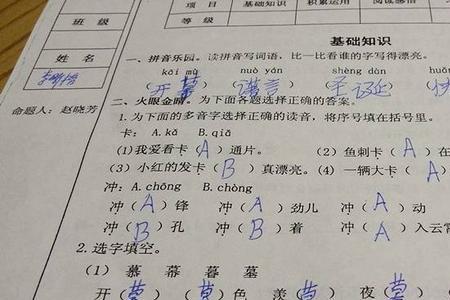 项 目 基础知识 积累运用 阅读感悟
等 级
班 级
姓 名
命题人：赵晓芳
基础知识
一、拼音乐园。读拼音写词语，比一比看谁的字写得漂亮。
kāi mù nuò yán shèng dàn
(开幕) (诺言) (圣诞) (快
二、火眼金睛。为下面各题选择正确的答案。
1.为下面的多音字选择正确的读音，将序号填在括号里。
卡：A.kǎ B.qiǎ
(1)我爱看卡(A)通片。 (2)鱼刺卡(A)在
(3)小红的发卡(B)真漂亮。(4)一辆大卡(A)
冲：A.chōng B.chòng
冲(A)锋 冲(A)劲儿 冲(A)动
冲(B)孔 冲(B)着 冲(A)入云霄
2.选字填空。
(1) 慕 幕 暮 墓
开(幕) ( )色 羡( ) 夜( )